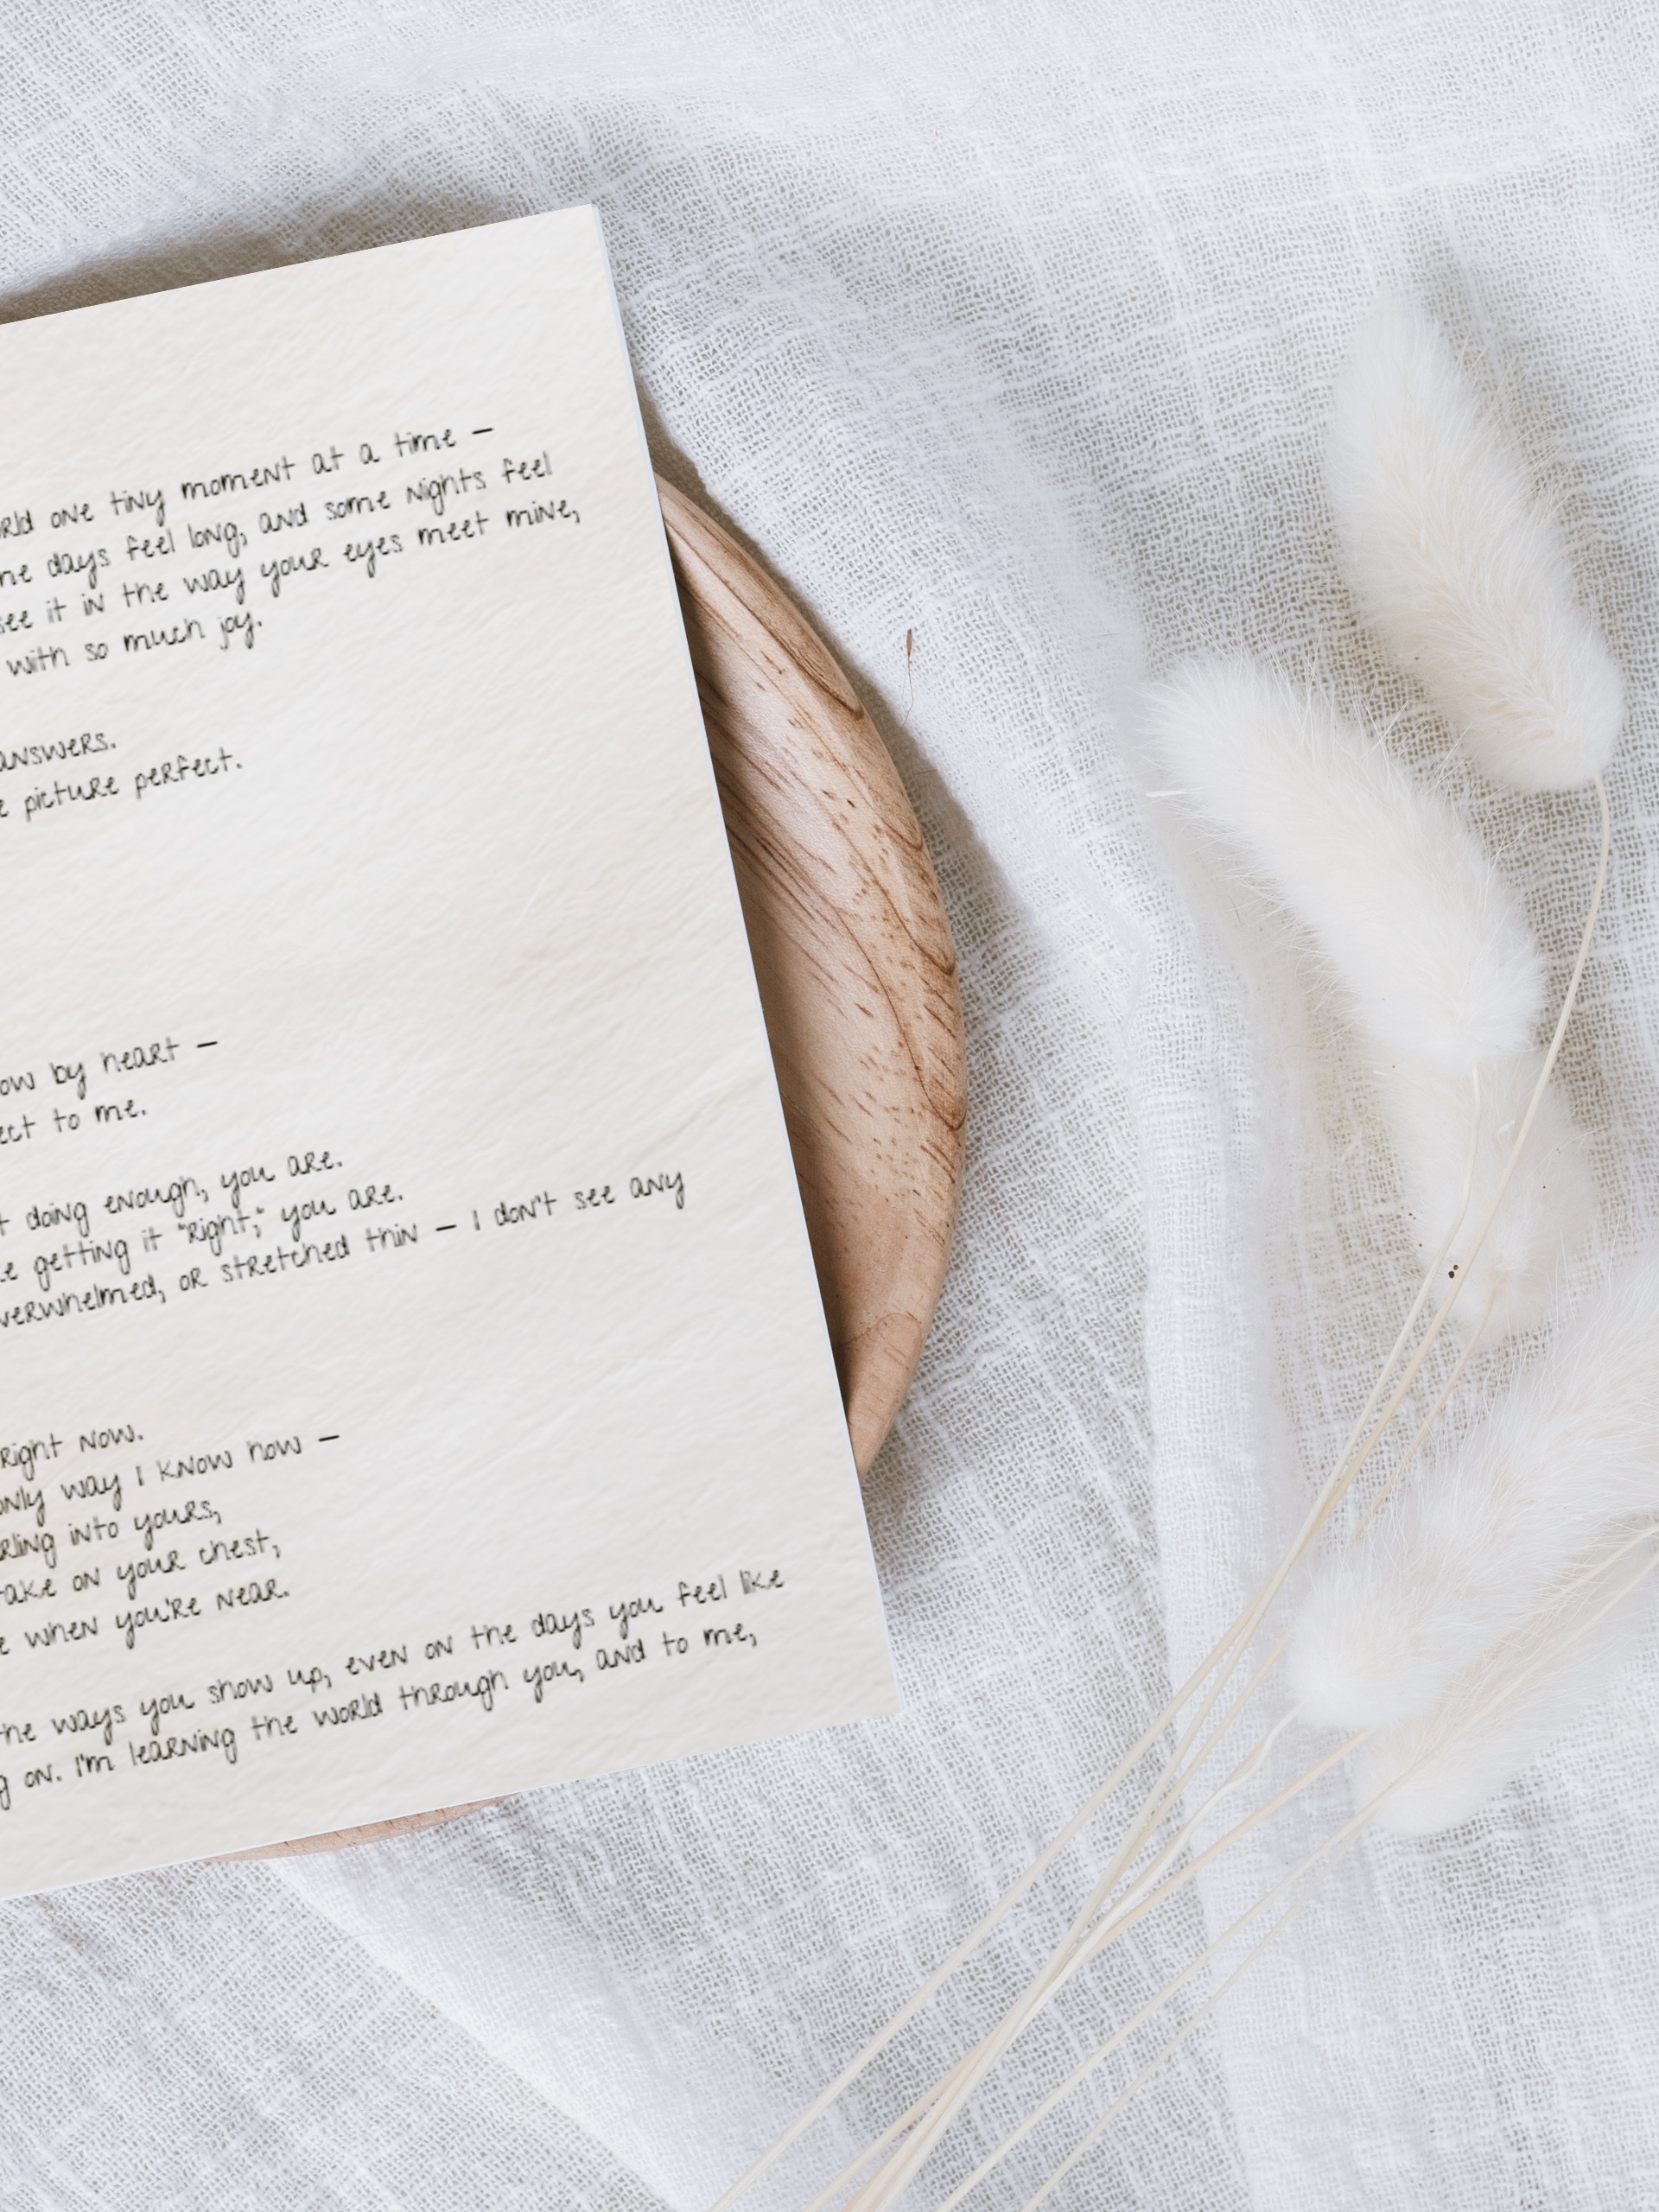 one tiny moment at a time –
days feel long, and some nights feel
see it in the way your eyes meet mine,
with so much joy.
answers.
picture perfect.
by heart –
to me.
doing enough, you are.
getting it "right," you are.
or stretched thin – I don't see any
right now.
way I know how –
into yours,
on your chest,
when you're near.
the ways you show up, even on the days you feel like
on. I'm learning the world through you, and to me,